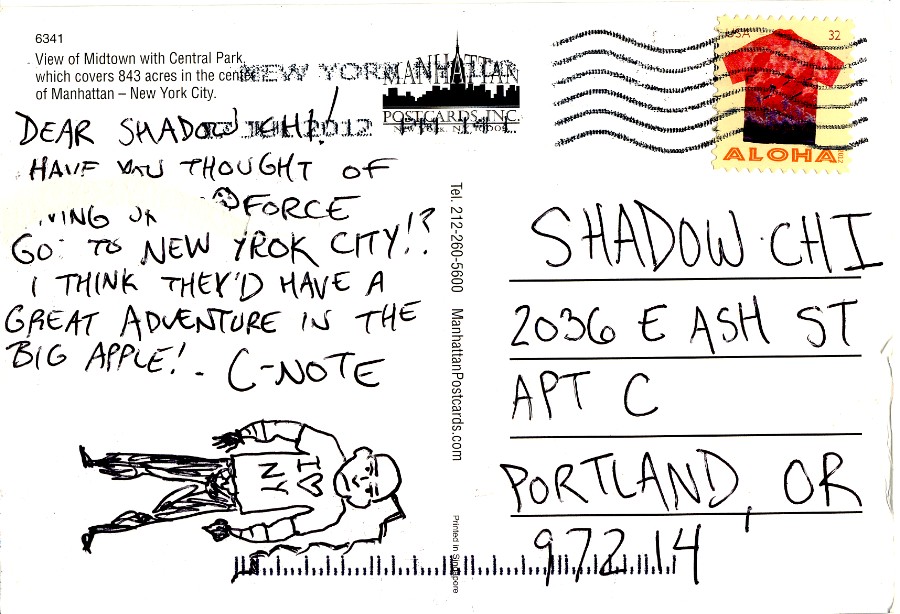 6341
View of Midtown with Central Park,
which covers 843 acres in the center
of Manhattan – New York City.
NEW YORK
MANHATTAN
POSTCARDS, INC.
NEW YORK, N.Y.
2012
USA 32
ALOHA
DEAR SHADOW CHI!
HAVE YOU THOUGHT OF
FORCE
GO TO NEW YROK CITY!?
I THINK THEY'D HAVE A
GREAT ADVENTURE IN THE
BIG APPLE! - C-NOTE
I ♥
NY
Tel. 212-260-5600 ManhattanPostcards.com
Printed in Singapore
SHADOW CHI
2036 E ASH ST
APT C
PORTLAND, OR
97214